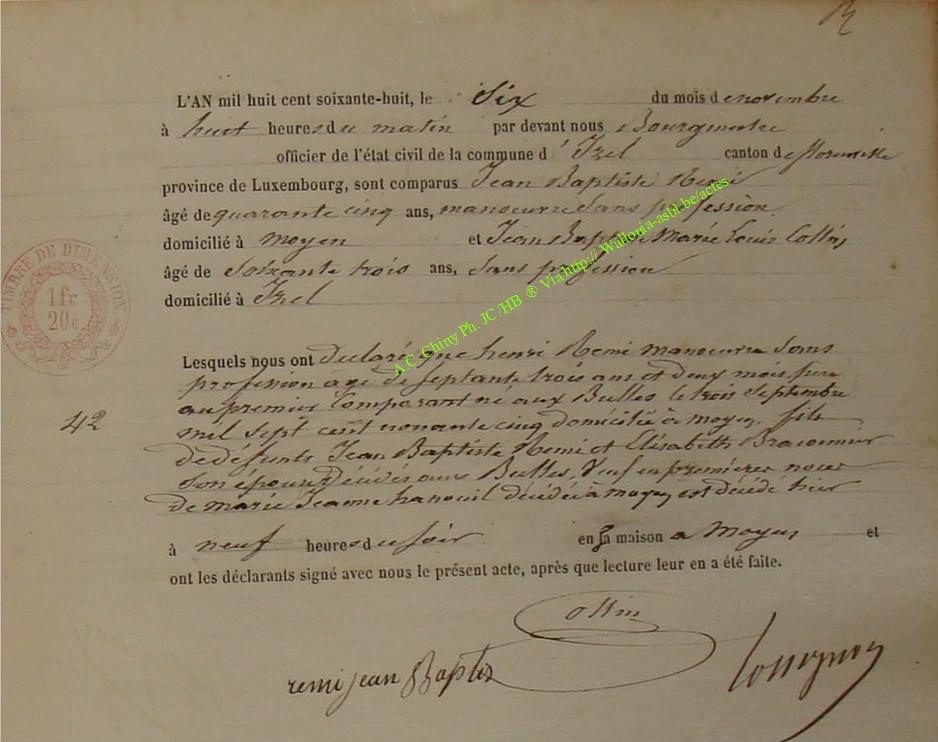 L'AN mil huit cent soixante-huit, le Six du mois de novembre
à huit heures du matin par devant nous Bourgmestre
officier de l'état civil de la commune d'Izel canton de florenville
province de Luxembourg, sont comparus Jean Baptiste Remi
âgé de quarante cinq ans, manoeuvre Sans profession
domicilié à moyen et Jean Baptiste Marie Louis Collin
âgé de Soixante trois ans, Sans profession
domicilié à Izel
TIMBRE DE DIMENSION.
1 fr
20 c
Lesquels nous ont declaré que henri Remi manoeuvre Sans
profession agé de septante trois ans et deux mois, pere
au premier Comparant né aux Bulles le trois Septembre
42
mil sept cent nonante cinq domicilié à moyen, fils
de défunts Jean Baptiste Remi et Elisabeth Braconnier
Son épouse décédés aux Bulles, Veuf en premières noces
de marie Jeanne hanouil décédée à moyen est décédé hier
à neuf heures du soir en sa maison a Moyen et
ont les déclarants signé avec nous le présent acte, après que lecture leur en a été faite.
Collin
remi jean Baptis
A.C. Chiny Ph. JC /HB ® Via http://Wallonia-asbl.be/actes